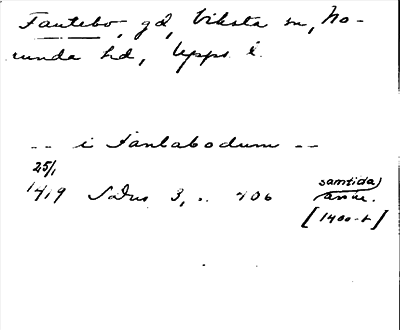 Fantebo, gd, Viksta sn, No-
runda hd, Upps. l.
-- i Fantabodum --
25/1
1419 SvDns 3, s. 406
samtida
anm.
[1400-t]